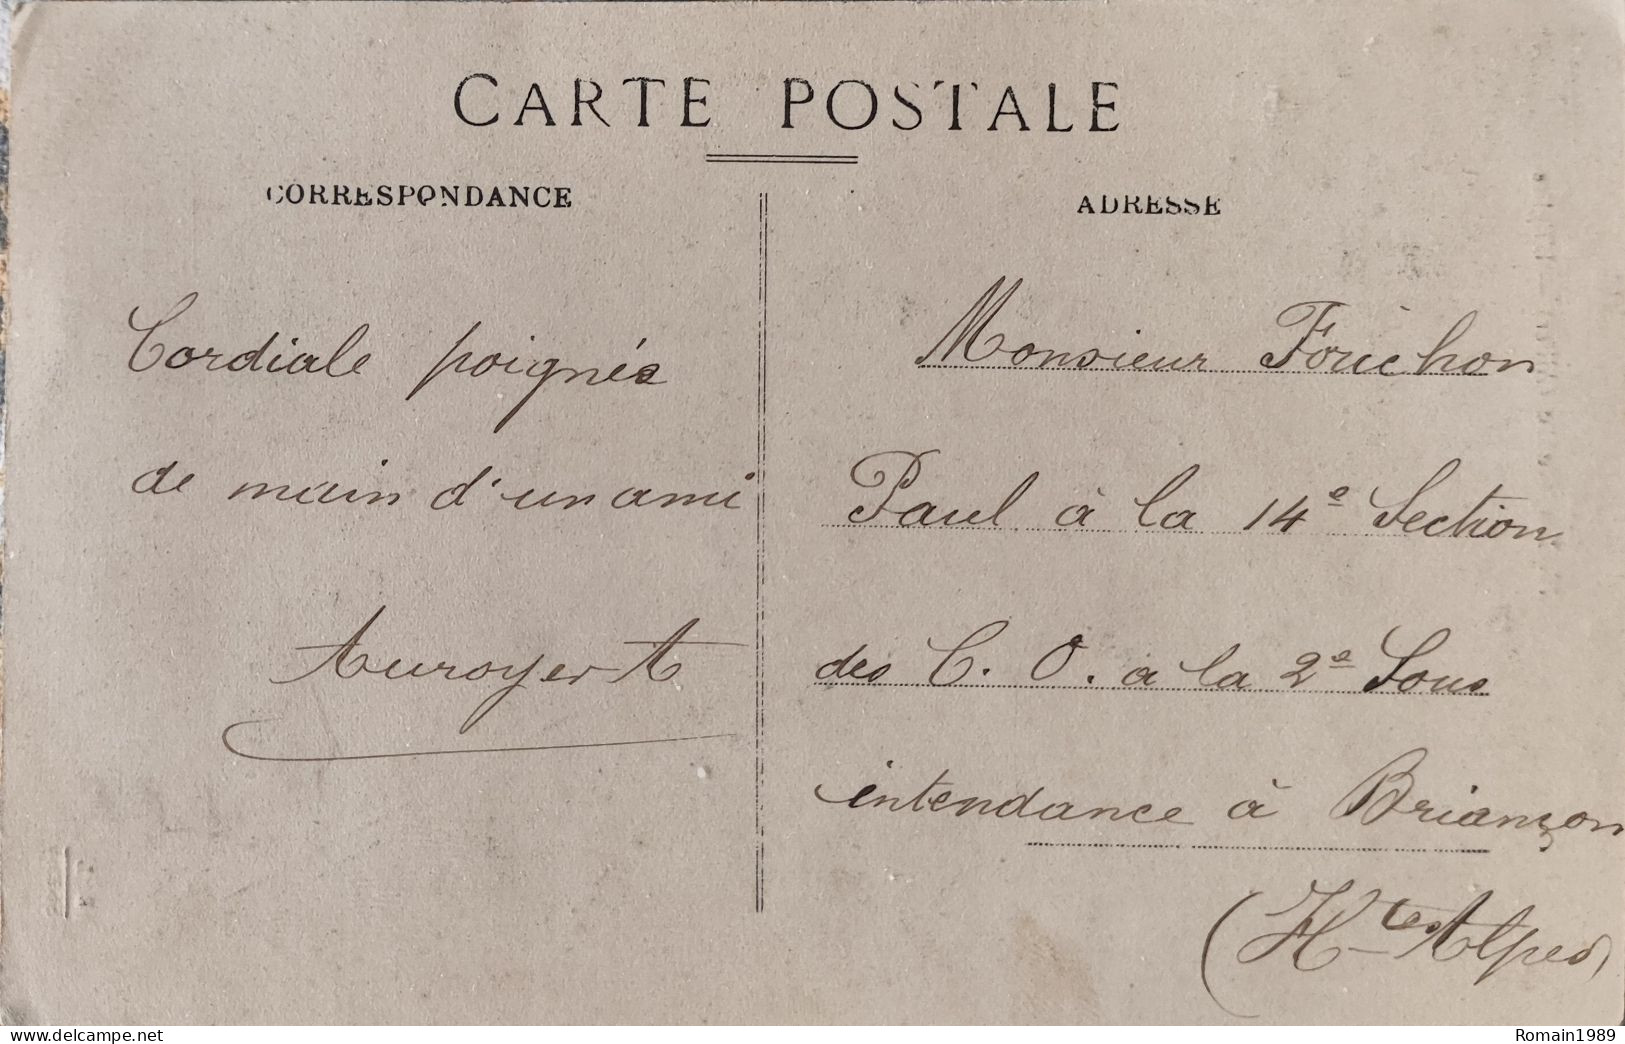 CARTE POSTALE
CORRESPONDANCE
ADRESSE
Cordiale poignés
de main d'un ami
Auroyer A
Monsieur Fouchon
Paul à la 14e Section
des C. O. a la 2e Sous
intendance à Briançon
(Htes Alpes)
Romain1989